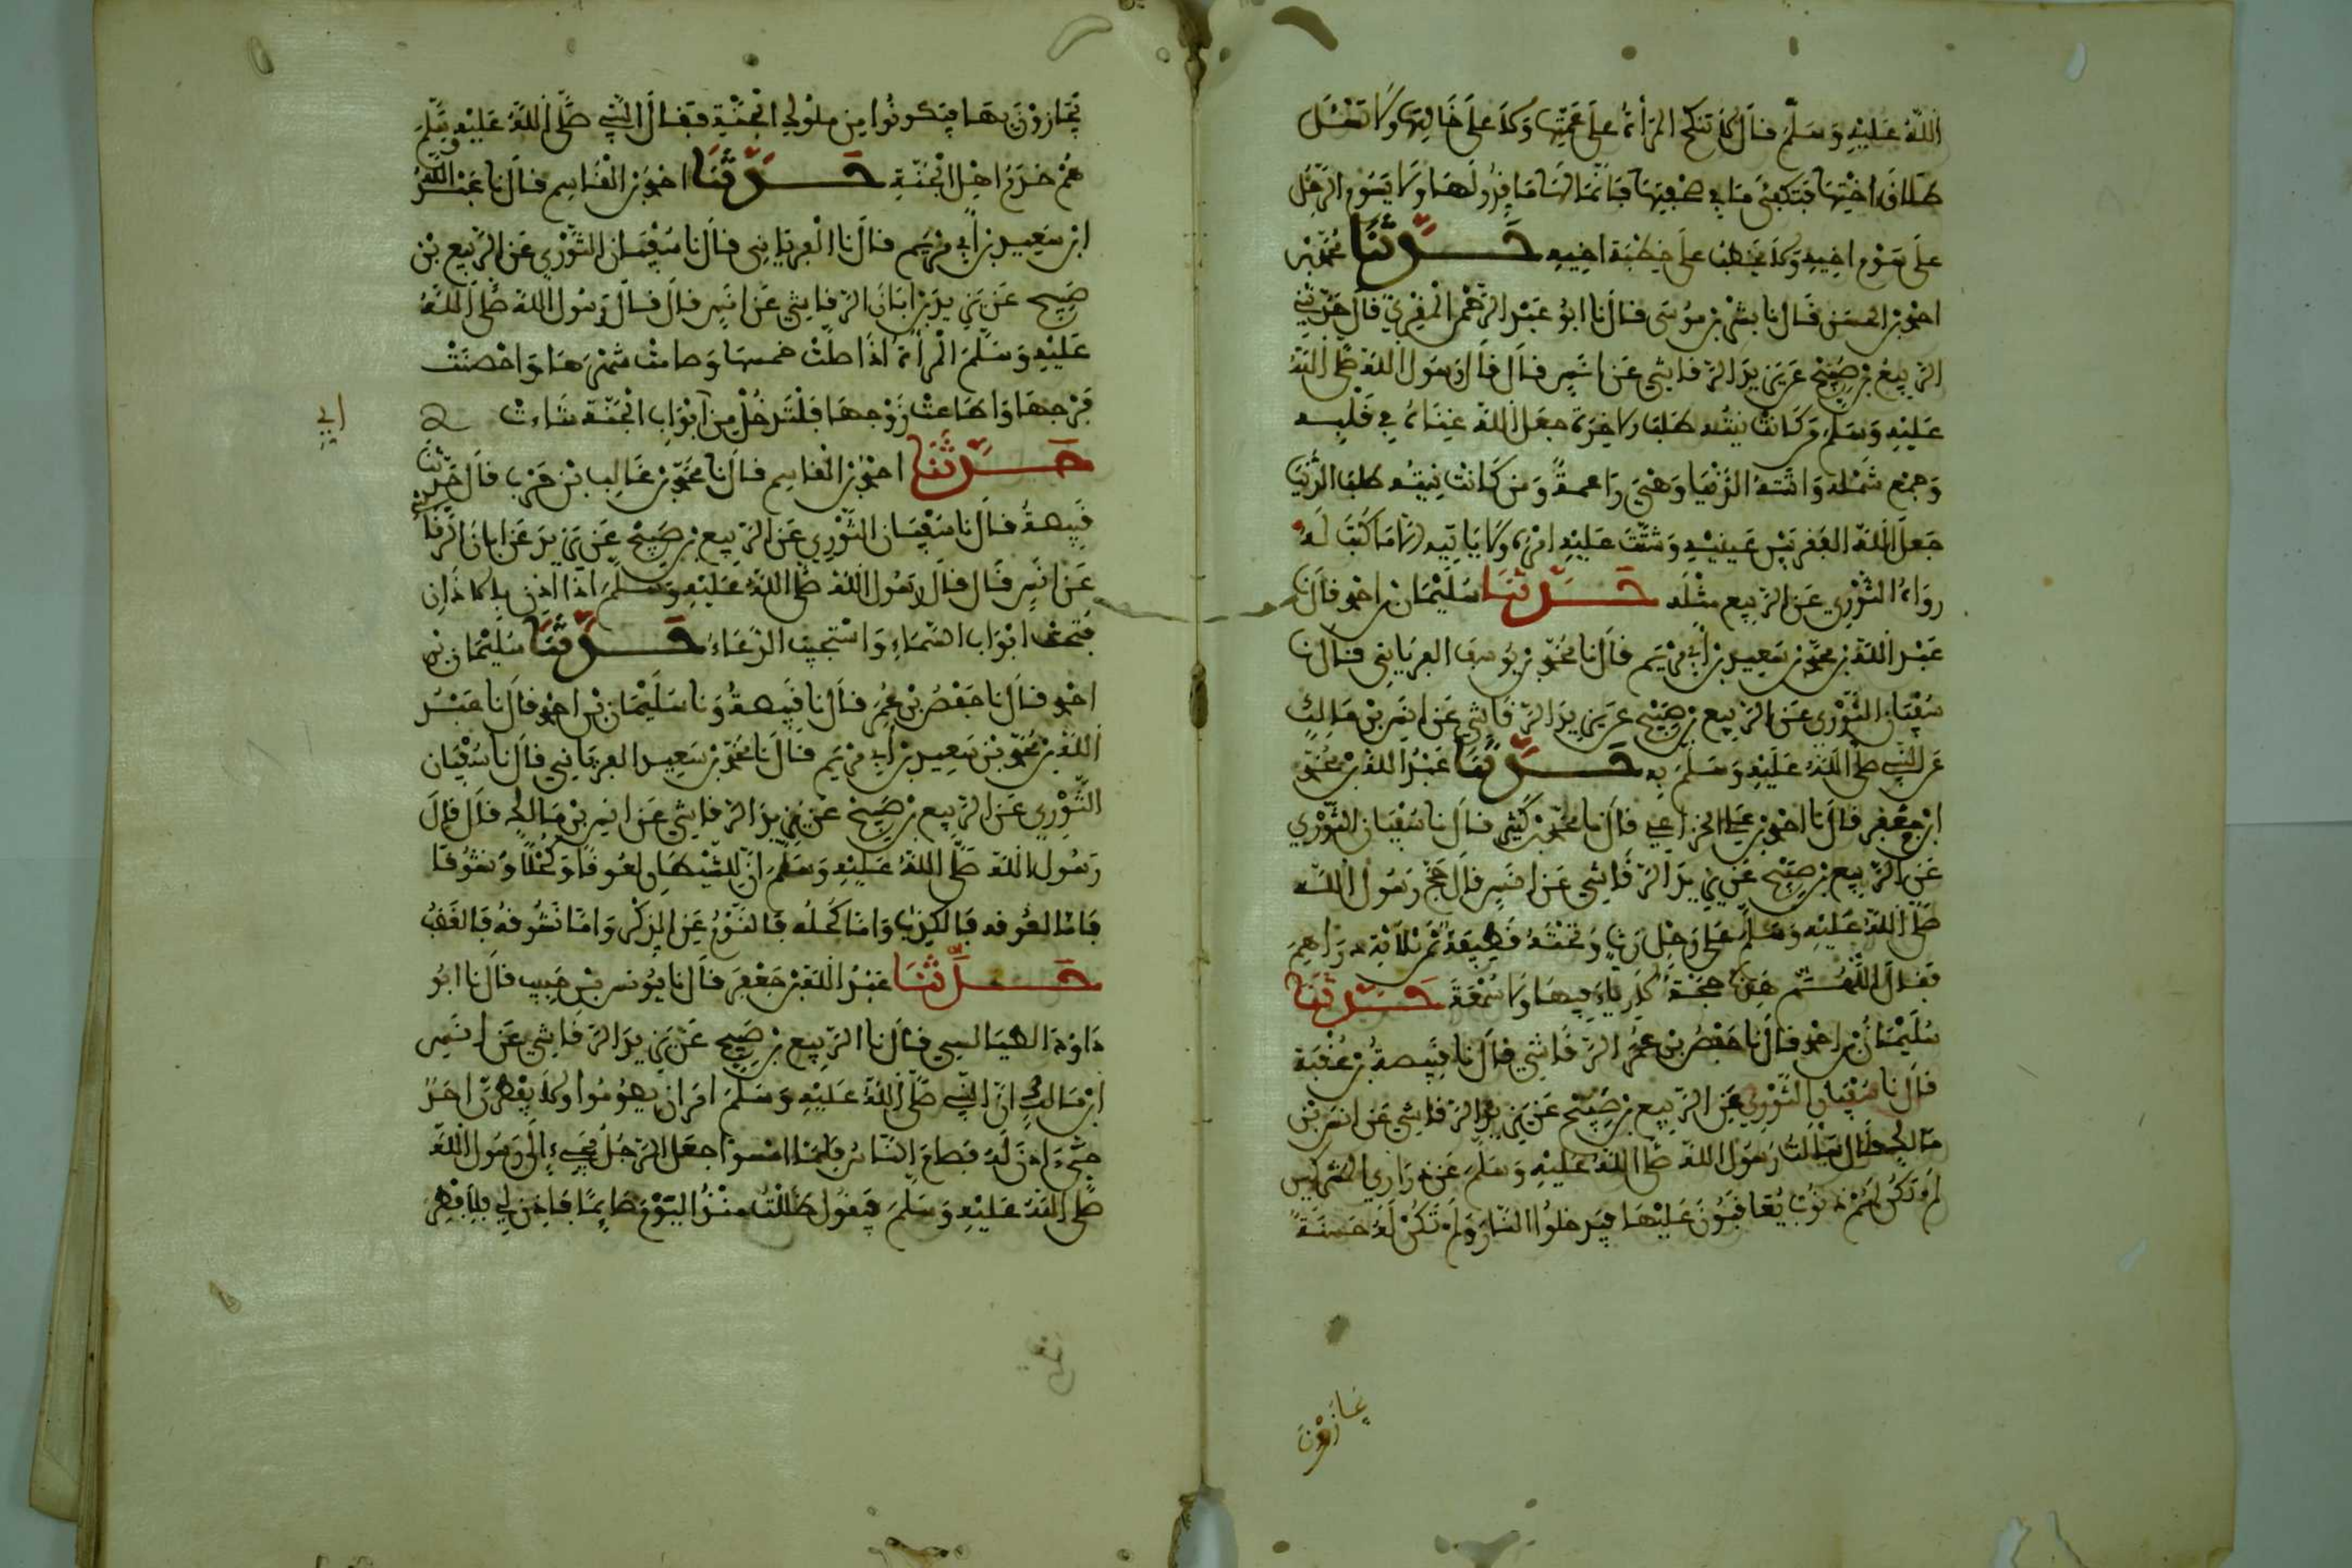 الله عليه وسلم قال لا تنكح المرأة على عمتها ولا على خالتها ولا تسل
طلاق اختها فتكفئ ما في صحفتها فانما لها ما قدر لها ولا يسوم الرجل
على سوم اخيه ولا يخطب على خطبة اخيه حدثنا محمد بن
احمد بن الحسن قال نا بشر بن موسى قال نا ابو عبد الرحمن المقرئ قال حدثني
الربيع بن صبيح عن يزيد الرقاشي عن انس قال قال رسول الله صلى الله
عليه وسلم من كانت نيته طلب الاخرة جعل الله غناه في قلبه
وجمع شمله واتته الدنيا وهي راغمة ومن كانت نيته طلب الدنيا
جعل الله الفقر بين عينيه وشتت عليه امره ولا ياتيه الا ما كتب له
رواه الثوري عن الربيع مثله حدثنا سليمان بن احمد قال نا
عبد الله بن محمد بن سعيد بن أبي مريم قال نا محمد بن يوسف الفريابي قال نا
سفيان الثوري عن الربيع بن صبيح عن يزيد الرقاشي عن انس بن مالك
عن النبي صلى الله عليه وسلم به حدثنا عبد الله بن محمد
ابن جعفر قال نا احمد بن علي الخزاعي قال نا محمد بن كثير قال نا سفيان الثوري
عن الربيع بن صبيح عن يزيد الرقاشي عن انس قال حج رسول الله
صلى الله عليه وسلم على رحل رث وتحته قطيفة ثمن ثلاثة دراهم
فقال اللهم هذه حجة لا رياء فيها ولا سمعة حدثنا
سليمان بن احمد قال نا حفص بن عمر الرقاشي قال نا قبيصة بن عقبة
قال نا سفيان الثوري عن الربيع بن صبيح عن يزيد الرقاشي عن انس بن
مالك قال سألت رسول الله صلى الله عليه وسلم عن ذراري المشركين
لم تكن لهم ذنوب يعاقبون عليها فيدخلوا النار ولم تكن له حسنة
يجازون
يجازون بها فيكونوا من ملوك الجنة فقال النبي صلى الله عليه وسلم
هم خدم اهل الجنة حدثنا احمد بن القاسم قال نا عبد الله
ابن سعيد بن أبي مريم قال نا الفريابي قال نا سفيان الثوري عن الربيع بن
صبيح عن يزيد بن ابان الرقاشي عن انس قال قال رسول الله صلى الله
عليه وسلم المرأة اذا صلت خمسها وصامت شهرها واحصنت
فرجها واطاعت زوجها فلتدخل من أبواب الجنة شاءت
حدثنا احمد بن القاسم قال نا محمد بن غالب بن حرب قال حدثنا
قبيصة قال نا سفيان الثوري عن الربيع بن صبيح عن يزيد عن ابان الرقاشي
عن انس قال قال رسول الله صلى الله عليه وسلم اذا اذن بالاذان
فتحت ابواب السماء واستجيب الدعاء حدثنا سليمان بن
احمد قال نا حفص بن عمر قال نا قبيصة ونا سليمان بن احمد قال نا عبد
الله بن محمد بن سعيد بن أبي مريم قال نا محمد بن سعيد الفريابي قال نا سفيان
الثوري عن الربيع بن صبيح عن يزيد الرقاشي عن انس بن مالك قال قال
رسول الله صلى الله عليه وسلم ان للشيطان لعوقا وكحلا ونشوقا
فاما لعوقه فالكذب واما كحله فالنوم عن الذكر واما نشوقه فالغضب
حدثنا عبد الله بن جعفر قال نا يونس بن حبيب قال نا ابو
داود الطيالسي قال نا الربيع بن صبيح عن يزيد الرقاشي عن انس
ابن مالك ان النبي صلى الله عليه وسلم امر ان يصوموا ولا يفطرن احد
حتى ءاذن له فصام الناس فلما امسوا جعل الرجل يجيء إلى رسول الله
صلى الله عليه وسلم فيقول ظللت منذ اليوم صائما فاذن لي فلأفطر